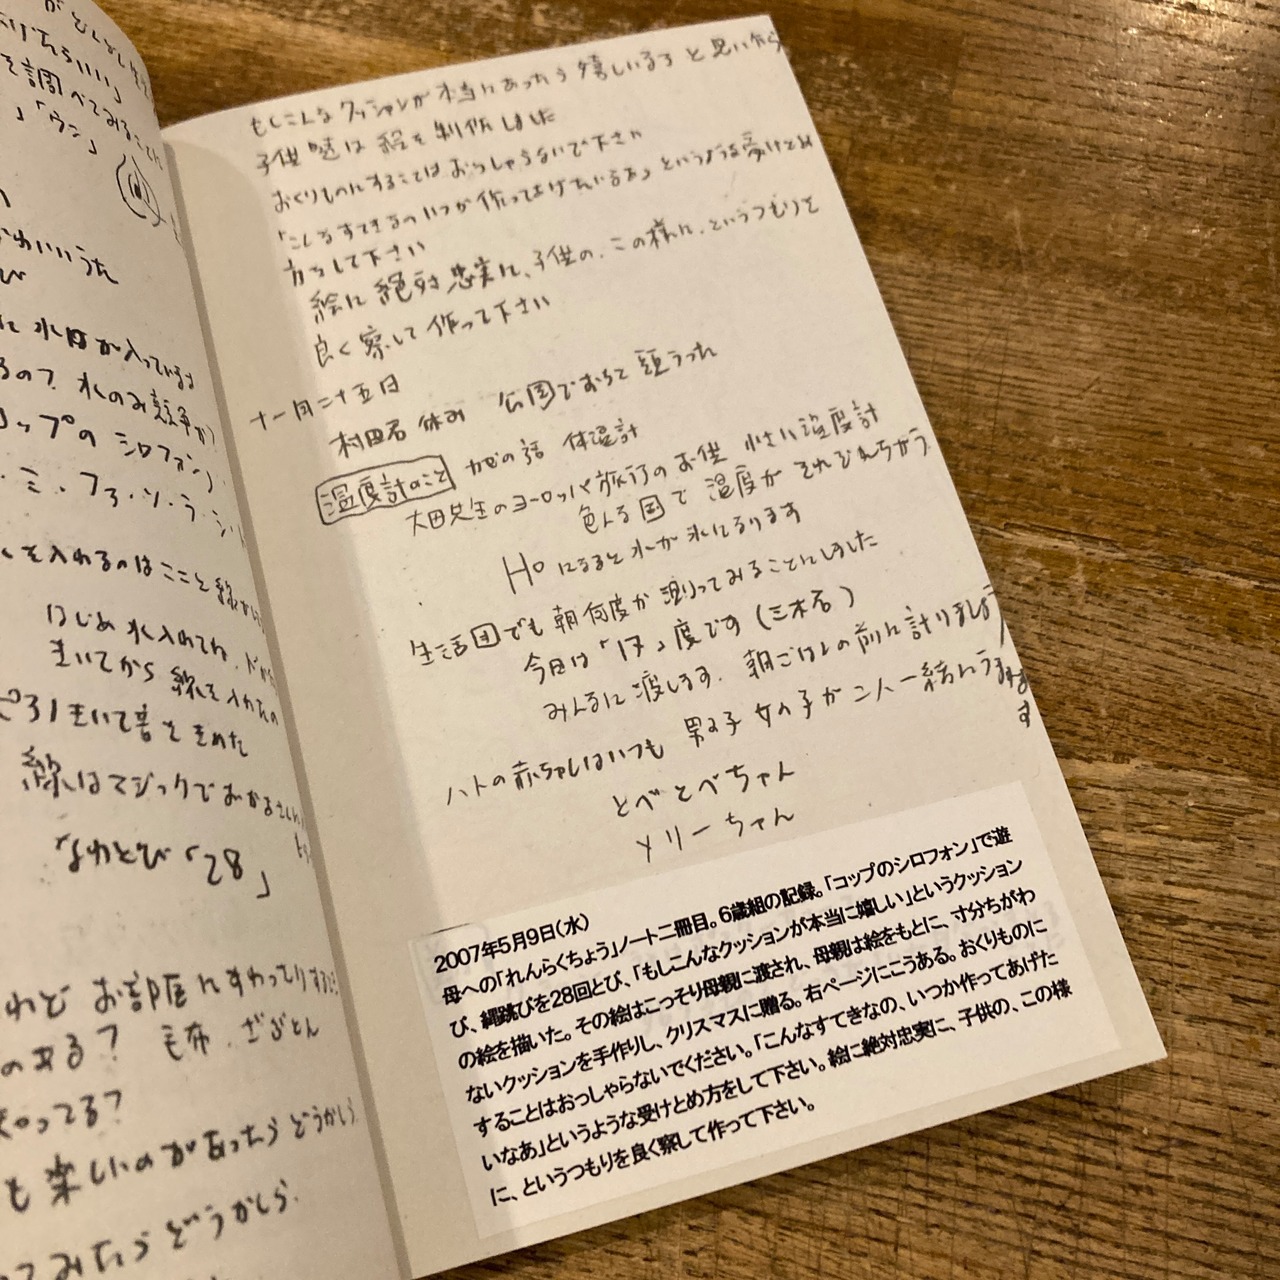 がとんとん
けたらいい」
を調べてみることに
」「ウン」
かわいいうた
び
に水は入っている
るの？水のみ競争か？
コップのシロフォン
・ミ・ファ・ソ・ラ・シ・ド
を入れるのはここと線かい
はじめ水入れてね、だから
きいてから線を入れたの
ピアノきいて音をきめた
線はマジックでおかあさん
なわとび「28」
れどお部屋にすわってりする
のある？毛布、ざぶとん
知ってる？
も楽しいのがあったらどうかしら
てみたらどうかしら
もしこんなクッションが本当にあったら嬉しいなあと思いながら
子供達は絵を制作しました
おくりものにすることはおっしゃらないで下さい
「こんなすてきなの いつか作ってあげたいなあ」というような受けとめ
方をして下さい
絵に絶対忠実に、子供の、この様に、というつもりを
良く察して作って下さい
十一月二十五日
村田君 休み 公園でおちて頭うった
温度計のこと かぜの話 体温計
大田先生のヨーロッパ旅行のお供 小さい温度計
色んな国で温度がそれぞれちがう
H°になると水が氷になります
生活団でも朝何度か測ってみることにしました
今日は「17」度です(三木君)
みんなに渡します。朝ごはんの前に計りましょう
ハトの赤ちゃんはいつも 男の子 女の子が二人一緒にうまれます
とべとべちゃん
メリーちゃん
2007年5月9日(水)
母への「れんらくちょう」ノート二冊目。6歳組の記録。「コップのシロフォン」で遊
び、縄跳びを28回とび、「もしこんなクッションが本当に嬉しい」というクッション
の絵を描いた。その絵はこっそり母親に渡され、母親は絵をもとに、寸分ちがわ
ないクッションを手作りし、クリスマスに贈る。右ページにこうある。おくりものに
することはおっしゃらないでください。「こんなすてきなの、いつか作ってあげた
いなあ」というような受けとめ方をして下さい。絵に絶対忠実に、子供の、この様
に、というつもりを良く察して作って下さい。